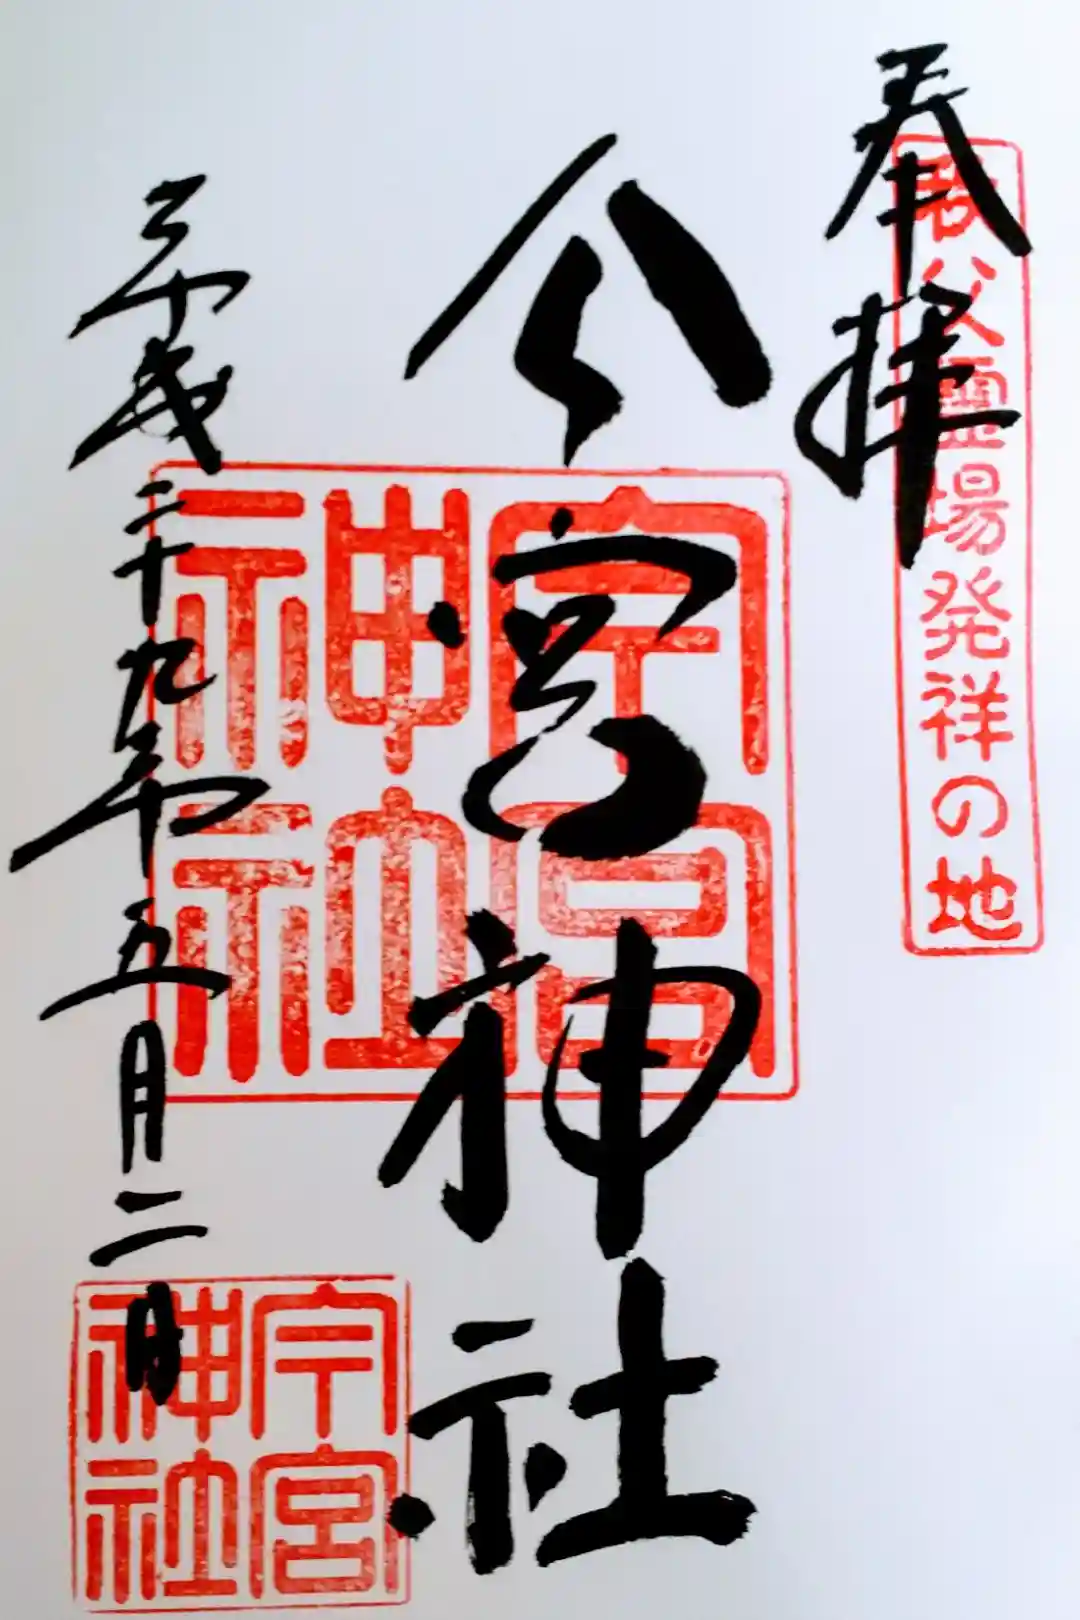 奉拝
秩父霊場発祥の地
今宮神社
今宮神社
平成二十九年五月二日
今宮神社